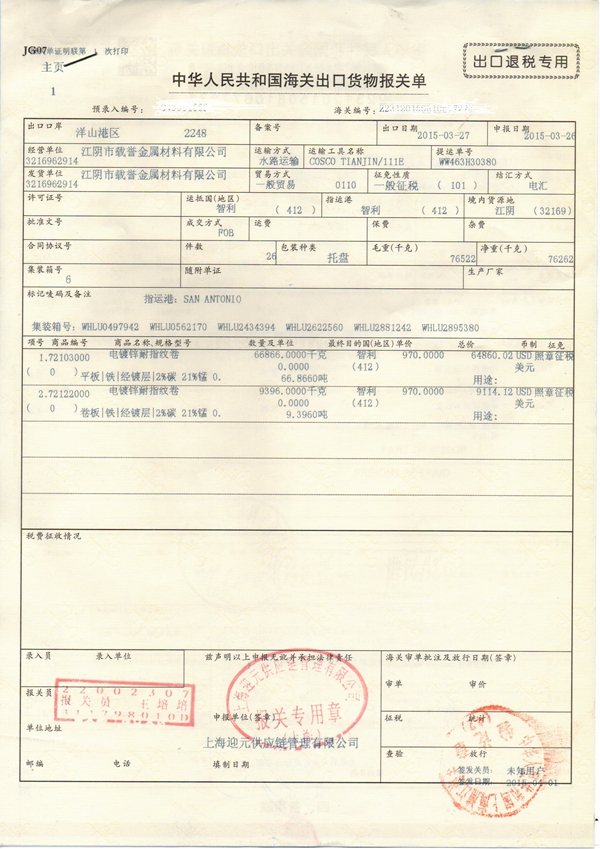 JG07 单证明联第 1 次打印
主页
1
出口退税专用
中华人民共和国海关出口货物报关单
预录入编号: 海关编号:
出口口岸 洋山港区 2248 备案号 出口日期 2015-03-27 申报日期 2015-03-26
经营单位 江阴市载誉金属材料有限公司 3216962914 运输方式 水路运输 运输工具名称 COSCO TIANJIN/111E 提运单号 WW463H30380
发货单位 江阴市载誉金属材料有限公司 3216962914 贸易方式 一般贸易 0110 征免性质 一般征税 (101) 结汇方式 电汇
许可证号 运抵国(地区) 智利 (412) 指运港 智利 (412) 境内货源地 江阴 (32169)
批准文号 成交方式 FOB 运费 保费 杂费
合同协议号 件数 26 包装种类 托盘 毛重(千克) 76522 净重(千克) 76262
集装箱号 6 随附单证 生产厂家
标记唛码及备注
指运港: SAN ANTONIO
集装箱号: WHLU0497942 WHLU0562170 WHLU2434394 WHLU2622560 WHLU2881242 WHLU2895380
项号 商品编号 商品名称、规格型号 数量及单位 最终目的国(地区) 单价 总价 币制 征免
1.72103000 电镀锌耐指纹卷 66866.0000千克 智利 970.0000 64860.02 USD 照章征税
( 0 ) 0.0000 (412) 美元
平板|铁|经镀层|2%碳 21%锰 0. 66.8660吨 用途:
2.72122000 电镀锌耐指纹卷 9396.0000千克 智利 970.0000 9114.12 USD 照章征税
( 0 ) 0.0000 (412) 美元
卷板|铁|经镀层|2%碳 21%锰 0. 9.3960吨 用途:
税费征收情况
录入员 录入单位 兹声明以上申报无讹并承担法律责任 海关审单批注及放行日期(签章)
审单 审价
报关员
22002307
报关员 王培培
上海迎元供应链管理有限公司
报关专用章
申报单位(签章)
征税 统计
单位地址
上海迎元供应链管理有限公司
查验 放行
邮编 电话 填制日期
签发关员: 未知用户
签发日期: 2015-04-01